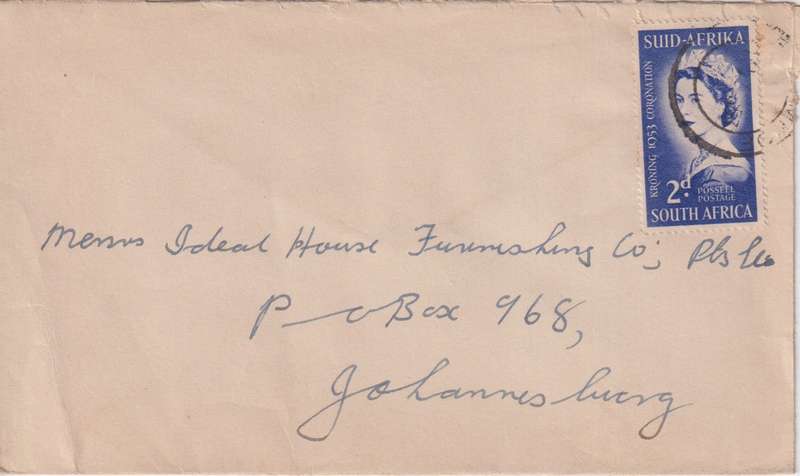 SUID-AFRIKA
KRONING 1953 CORONATION
2d.
POSSEEL
POSTAGE
SOUTH AFRICA
Messrs Ideal House Furnishing Co;
P O Box 968,
Johannesburg